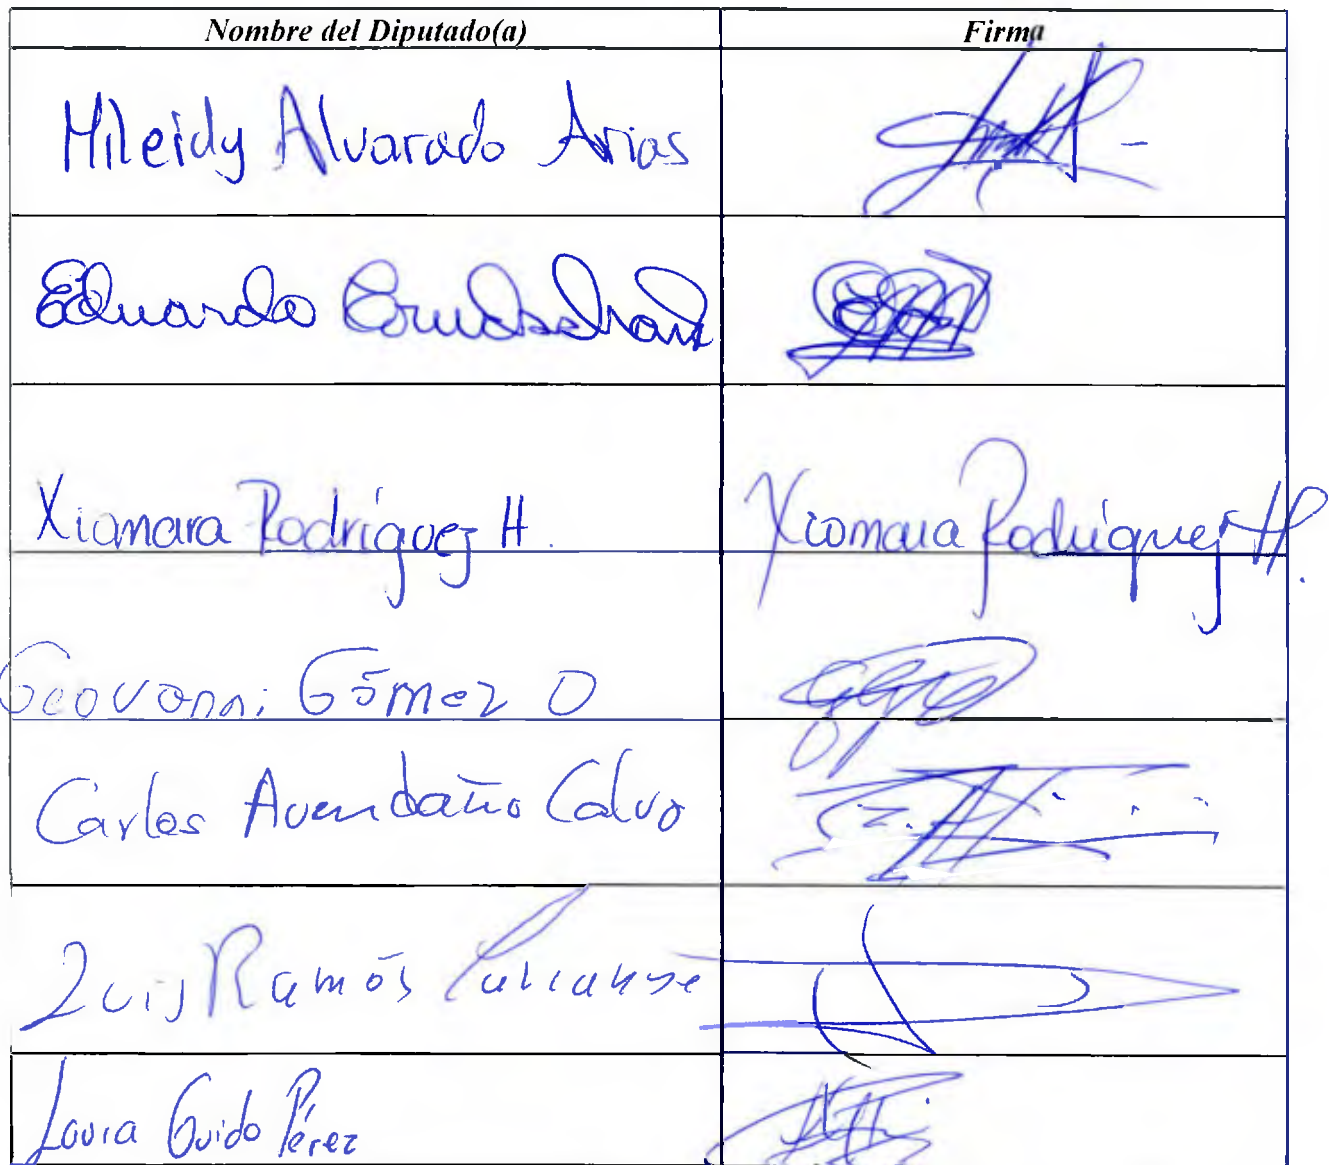 Nombre del Diputado(a) Firma
Mileidy Alvarado Arias
Eduardo
Xiomara Rodríguez H. Xiomara Rodríguez H.
Geovanni Gómez O
Carlos Avendaño Calvo
Luis Ramón
Laura Guido Pérez